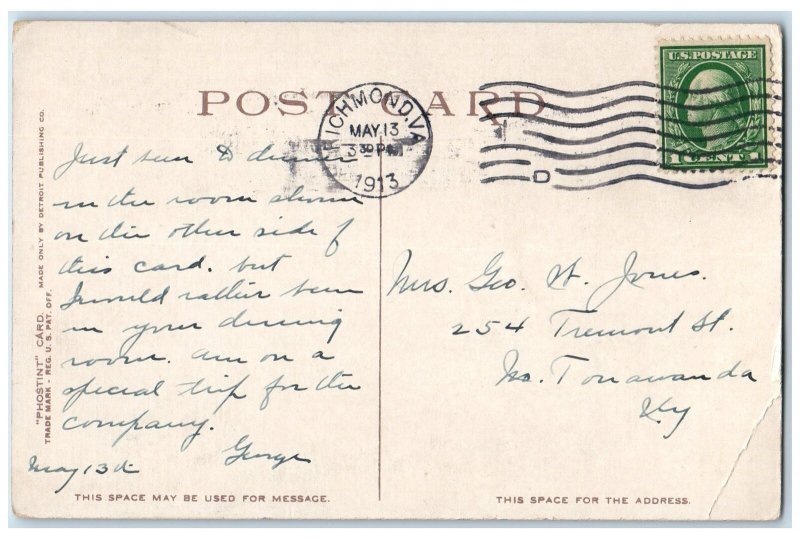 POST CARD
RICHMOND, VA
MAY 13
3 30 PM
1913
U.S. POSTAGE
1 CENT 1
D
"PHOSTINT" CARD. MADE ONLY BY DETROIT PUBLISHING CO.
TRADE MARK - REG. U. S. PAT. OFF.
Just had dinner
in the room shown
on the other side of
this card. but
I would rather been
in your dining
room. Am on a
special trip for the
company.
George
May 13th
Mrs. Geo. W. Jones.
254 Tremont St.
No. Tonawanda
N.Y
THIS SPACE MAY BE USED FOR MESSAGE.
THIS SPACE FOR THE ADDRESS.